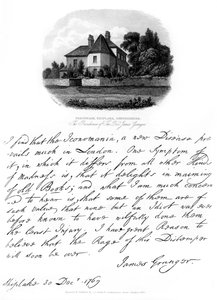 SHIPLAKE VICARAGE, OXFORDSHIRE.
The Residence of The Revd. James Granger.
I find that the Iconomania, a new Disease pre
vails much in London. One Symptom of
it, in which it differs from all other Kinds
of Madness is, that it delights in maiming
of Old Books; and what I am much concern'd
to hear is, that some of them are of
such value, that none but an Idiot was ever
before known to have wilfully done them
the least Injury. I have great Reason to
believe that the Rage of this Distemper
will soon be over.
James Granger.
Shiplake 30 Decr. 1769